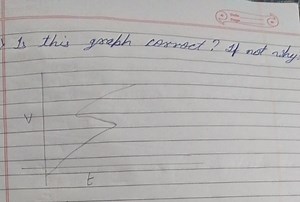 Is this graph correct? If not why
V
t